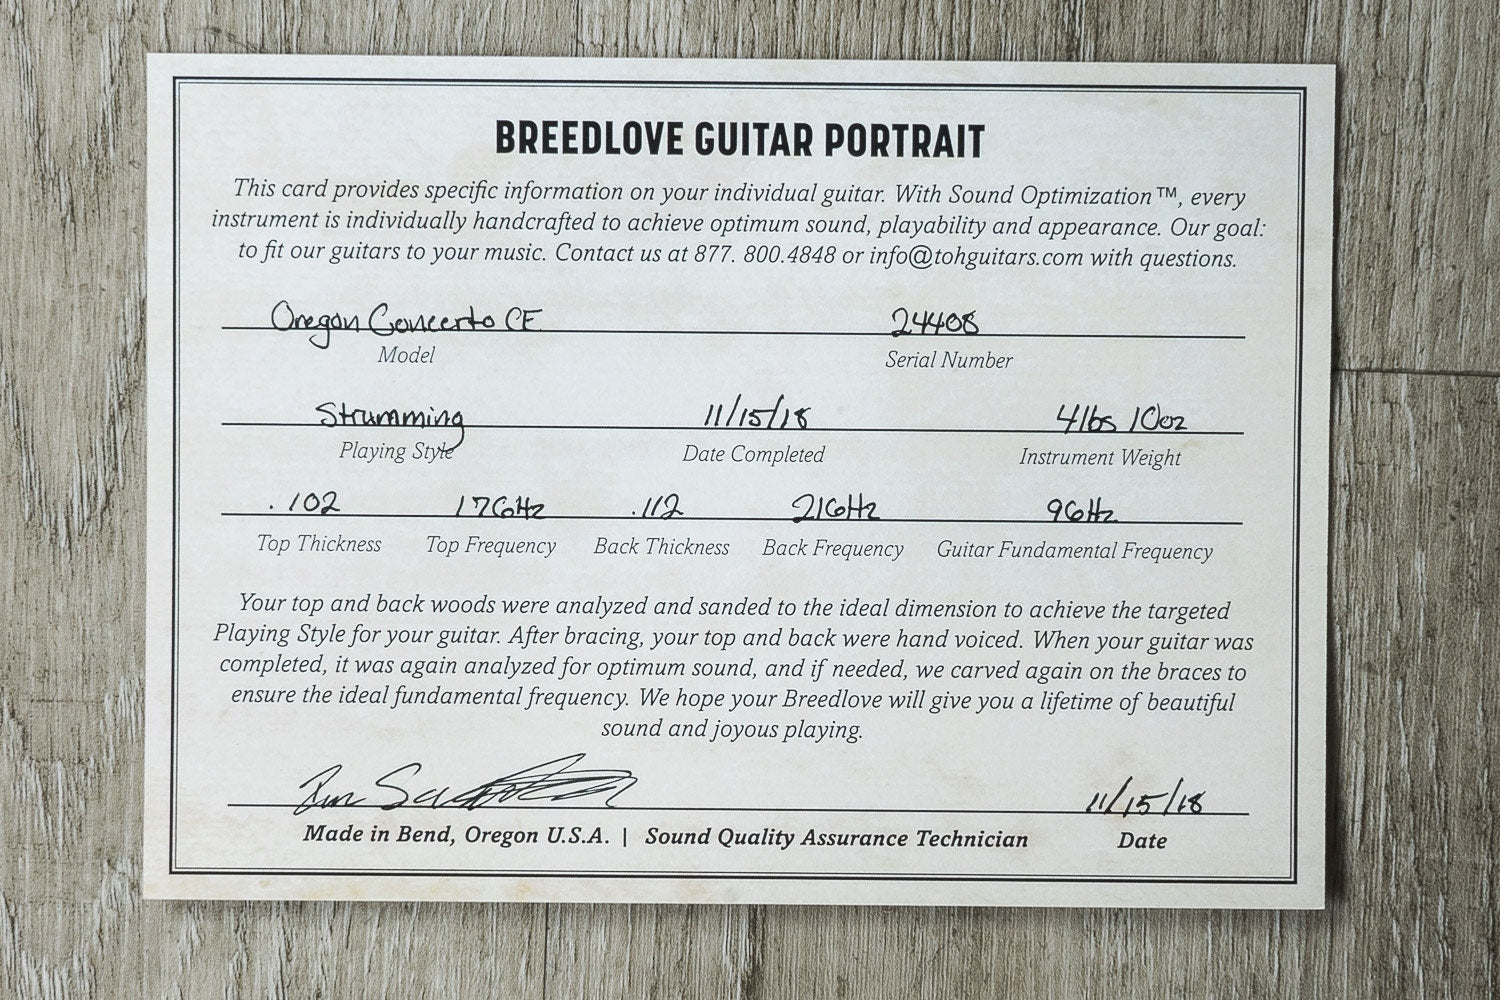 BREEDLOVE GUITAR PORTRAIT
This card provides specific information on your individual guitar. With Sound Optimization™, every
instrument is individually handcrafted to achieve optimum sound, playability and appearance. Our goal:
to fit our guitars to your music. Contact us at 877. 800.4848 or info@tohguitars.com with questions.
Oregon Concerto CE 24408
Model Serial Number
Strumming 11/15/18 4lbs 10oz
Playing Style Date Completed Instrument Weight
.102 176Hz .112 216Hz 96Hz
Top Thickness Top Frequency Back Thickness Back Frequency Guitar Fundamental Frequency
Your top and back woods were analyzed and sanded to the ideal dimension to achieve the targeted
Playing Style for your guitar. After bracing, your top and back were hand voiced. When your guitar was
completed, it was again analyzed for optimum sound, and if needed, we carved again on the braces to
ensure the ideal fundamental frequency. We hope your Breedlove will give you a lifetime of beautiful
sound and joyous playing.
11/15/18
Made in Bend, Oregon U.S.A. | Sound Quality Assurance Technician Date